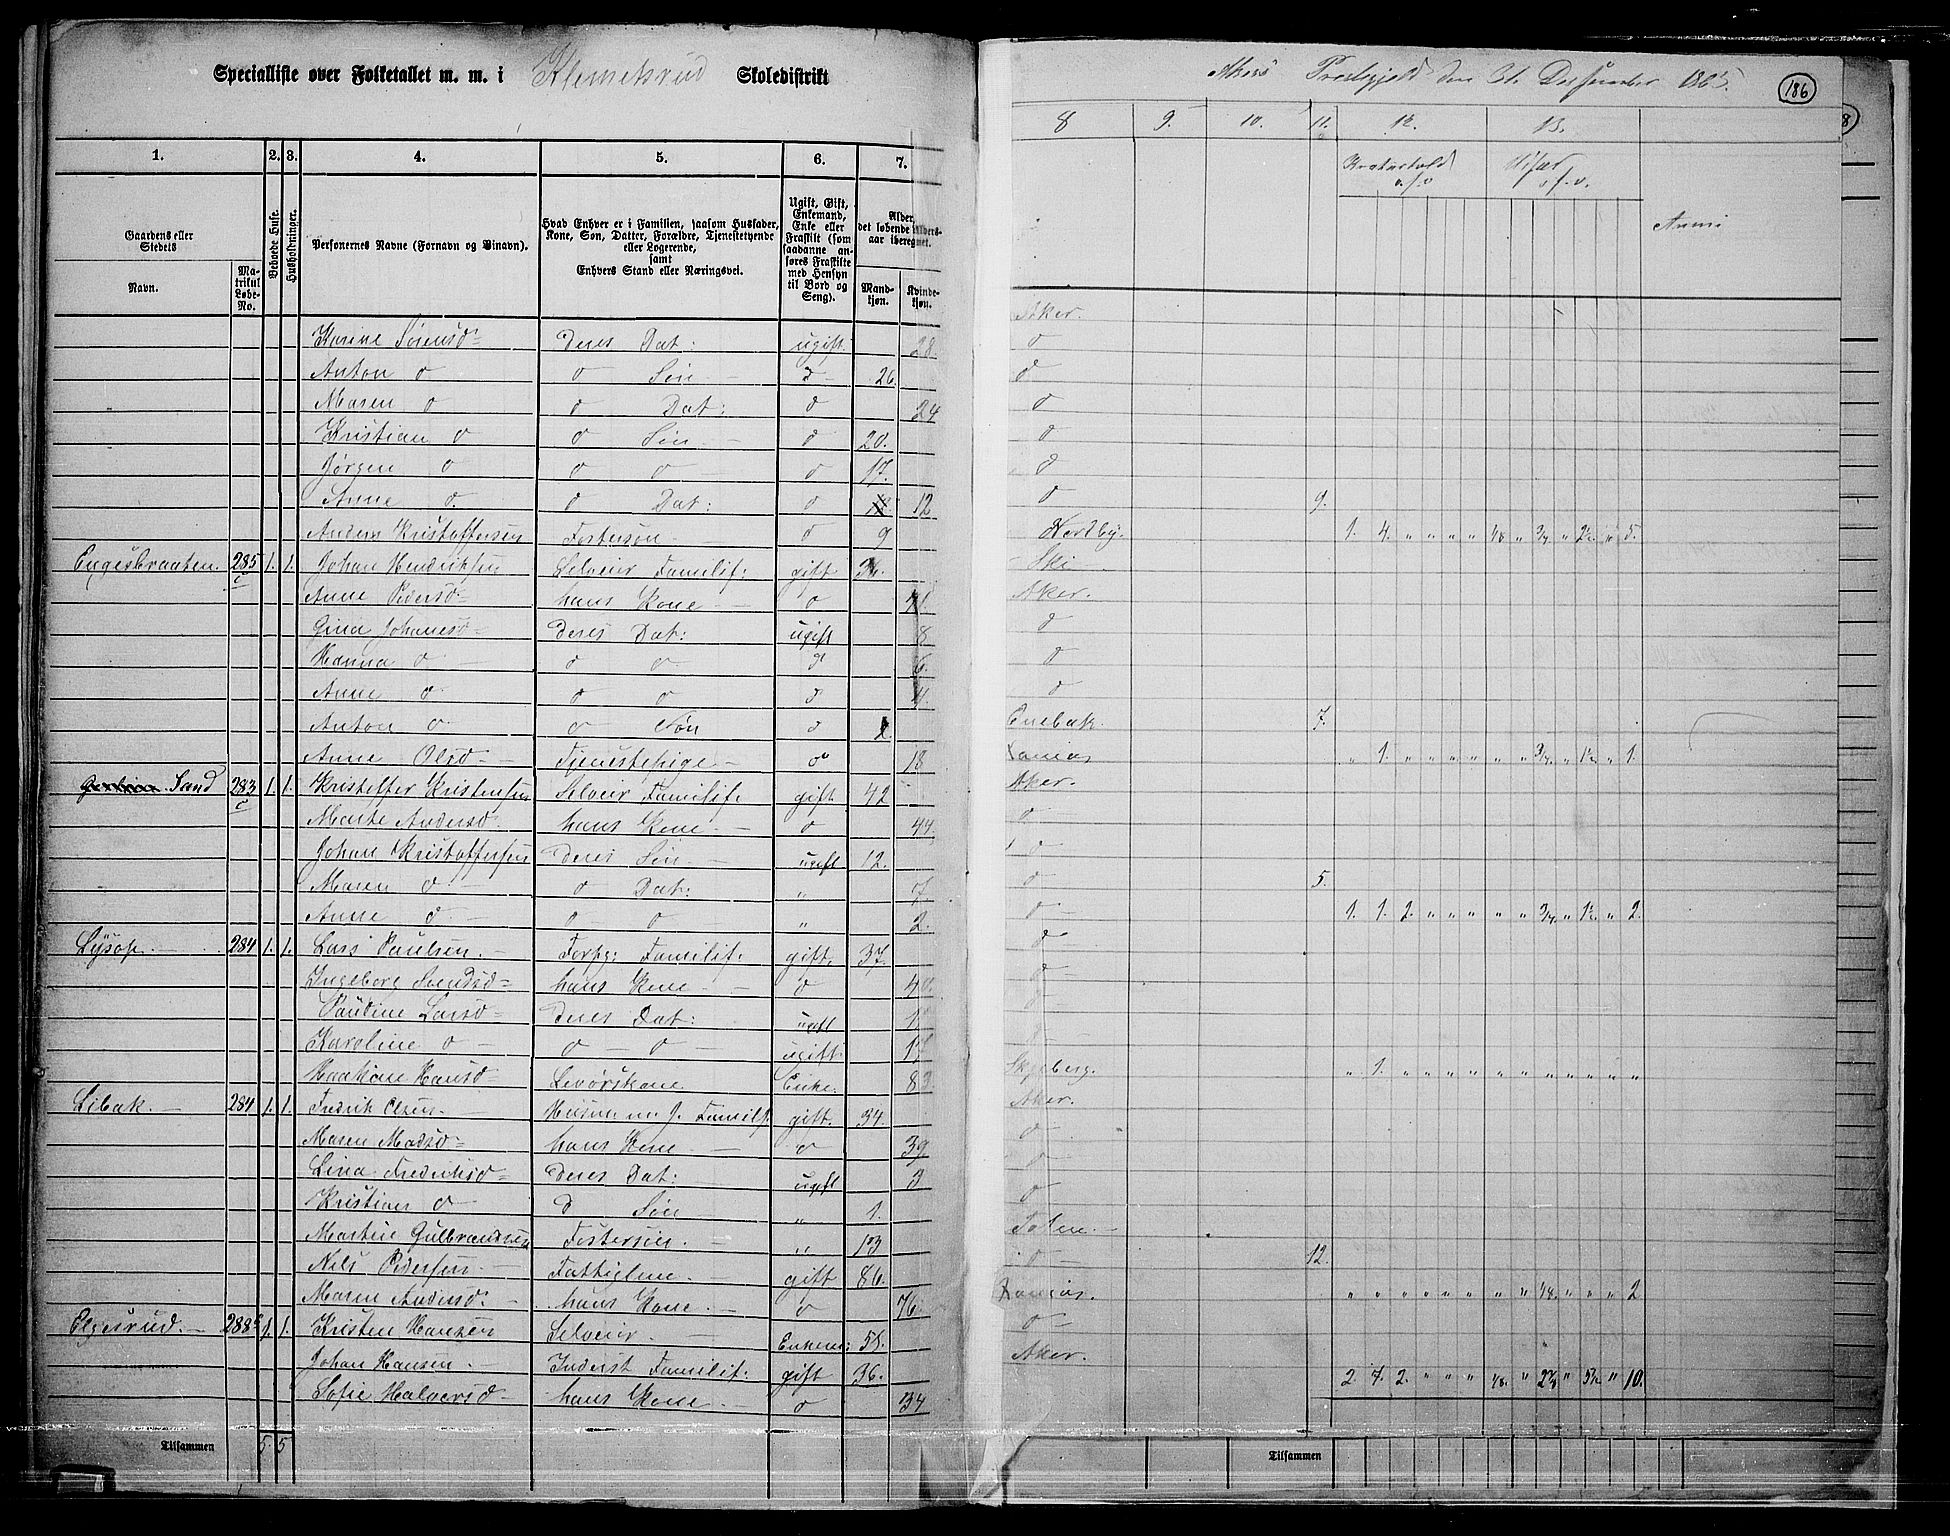 Specialliste over Folketallet m. m. i Klemetsrud Skoledistrikt
Akers Prestegjeld den 31. December 1865.
186
1. 2. 3. 4. 5. 6. 7. 8 9. 10. 11. 12. 13.
Gaardens eller Stedets
Navn. Matrikul Løbe-No.
Beboede Huse.
Husholdninger.
Personernes Navne (Fornavn og Binavn).
Hvad Enhver er i Familien, saasom Husfader, Kone, Søn, Datter, Forældre, Tjenestetyende eller Logerende, samt Enhvers Stand eller Næringsvei.
Ugift, Gift, Enkemand, Enke eller Fraskilt (som saadanne anføres Fraskilte med Hensyn til Bord og Seng).
Alder, det løbende Aldersaar iberegnet.
Mandkjøn. Kvindekjøn.
Kreaturhold o.s.v
Udsæd o.s.v.
Karine Sørensd= Deres Dat: ugift 28. Aker.
Anton o o Søn o 26. o
Maren o o Dat: o 24 o
Kristian o o Søn o 20. o
Jørgen o o o o 17. o
Anne o. o Dat: o 12 o
Anders Kristoffersen Fostersøn o 9 o 9.
Engesbraaten. 285 c 1. 1. Johan Hendriksen Selveier Familif: gift Nordby. 1. 4. " " " " 1/8 " 3/4 " 2½ " 5.
Anne Pedersd= hans Kone o Ski
Gina Johanesd= Deres Dat: ugift 8 Aker.
Hanna o o o o 6. o
Anne o o o o 4. o
Anton o o Søn o o
Anne Olsd= Tjenestepige o 18 Enebak. 7.
Sand 283 c 1. 1. Kristoffer Kristensen Selveier Familif. gift 42 " 1. " " " " " " 3/4. " 1½ " 1.
Marte Andersd. hans Kone o 44. Aker.
Johan Kristoffersen Deres Søn ugift 12. o
Maren o o Dat: " 7 o
Anne o. o o " 2. o 5.
Lysop. 284 1. 1. Lars Paulsen. Forpg: Familif. gift. 37. o 1. 1. 2. " " " " " 3/4. " 1½ " 2.
Ingeborg Svendsd= hans Kone. o 40. o
Pauline Larsd= Deres Dat: ugift o
Karoline o o o ugift o
Haakone Hansd= Levørskone Enke. 83
Libak. 284 1. 1. Fredrik Olsen. Husm: m. J. Familif. gift. 34. Skjeberg. " 1. " " " " " " " " " " "
Maren Madsd= hans Kone o 39 Aker.
Lina Fredriksd= Deres Dat: ugift 3 o
Kristian o o Søn " 1. o
Martin Gulbrandsen Fostersøn. " 13 o
Nils Pedersen. Fattiglem. gift 86. Toten.
Maren Andersd. hans Kone. o 76 o 12.
Elgesrud. 288 1. 1. Kristen Hansen Selveier. Enkem: 55. " " " " " " " " 1/8. " " " 2
Johan Hansen. Inderst Familif: gift 36. o
Sofie Halvorsd= hans Kone. o 34 Aker.
2 7. 2. " " " 1/8. " " " 10.
Tilsammen 5. 5
Tilsammen